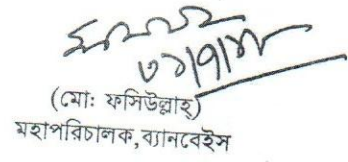 ৩১/৭/১৮
(মো: ফসিউল্লাহ্)
মহাপরিচালক, ব্যানবেইস